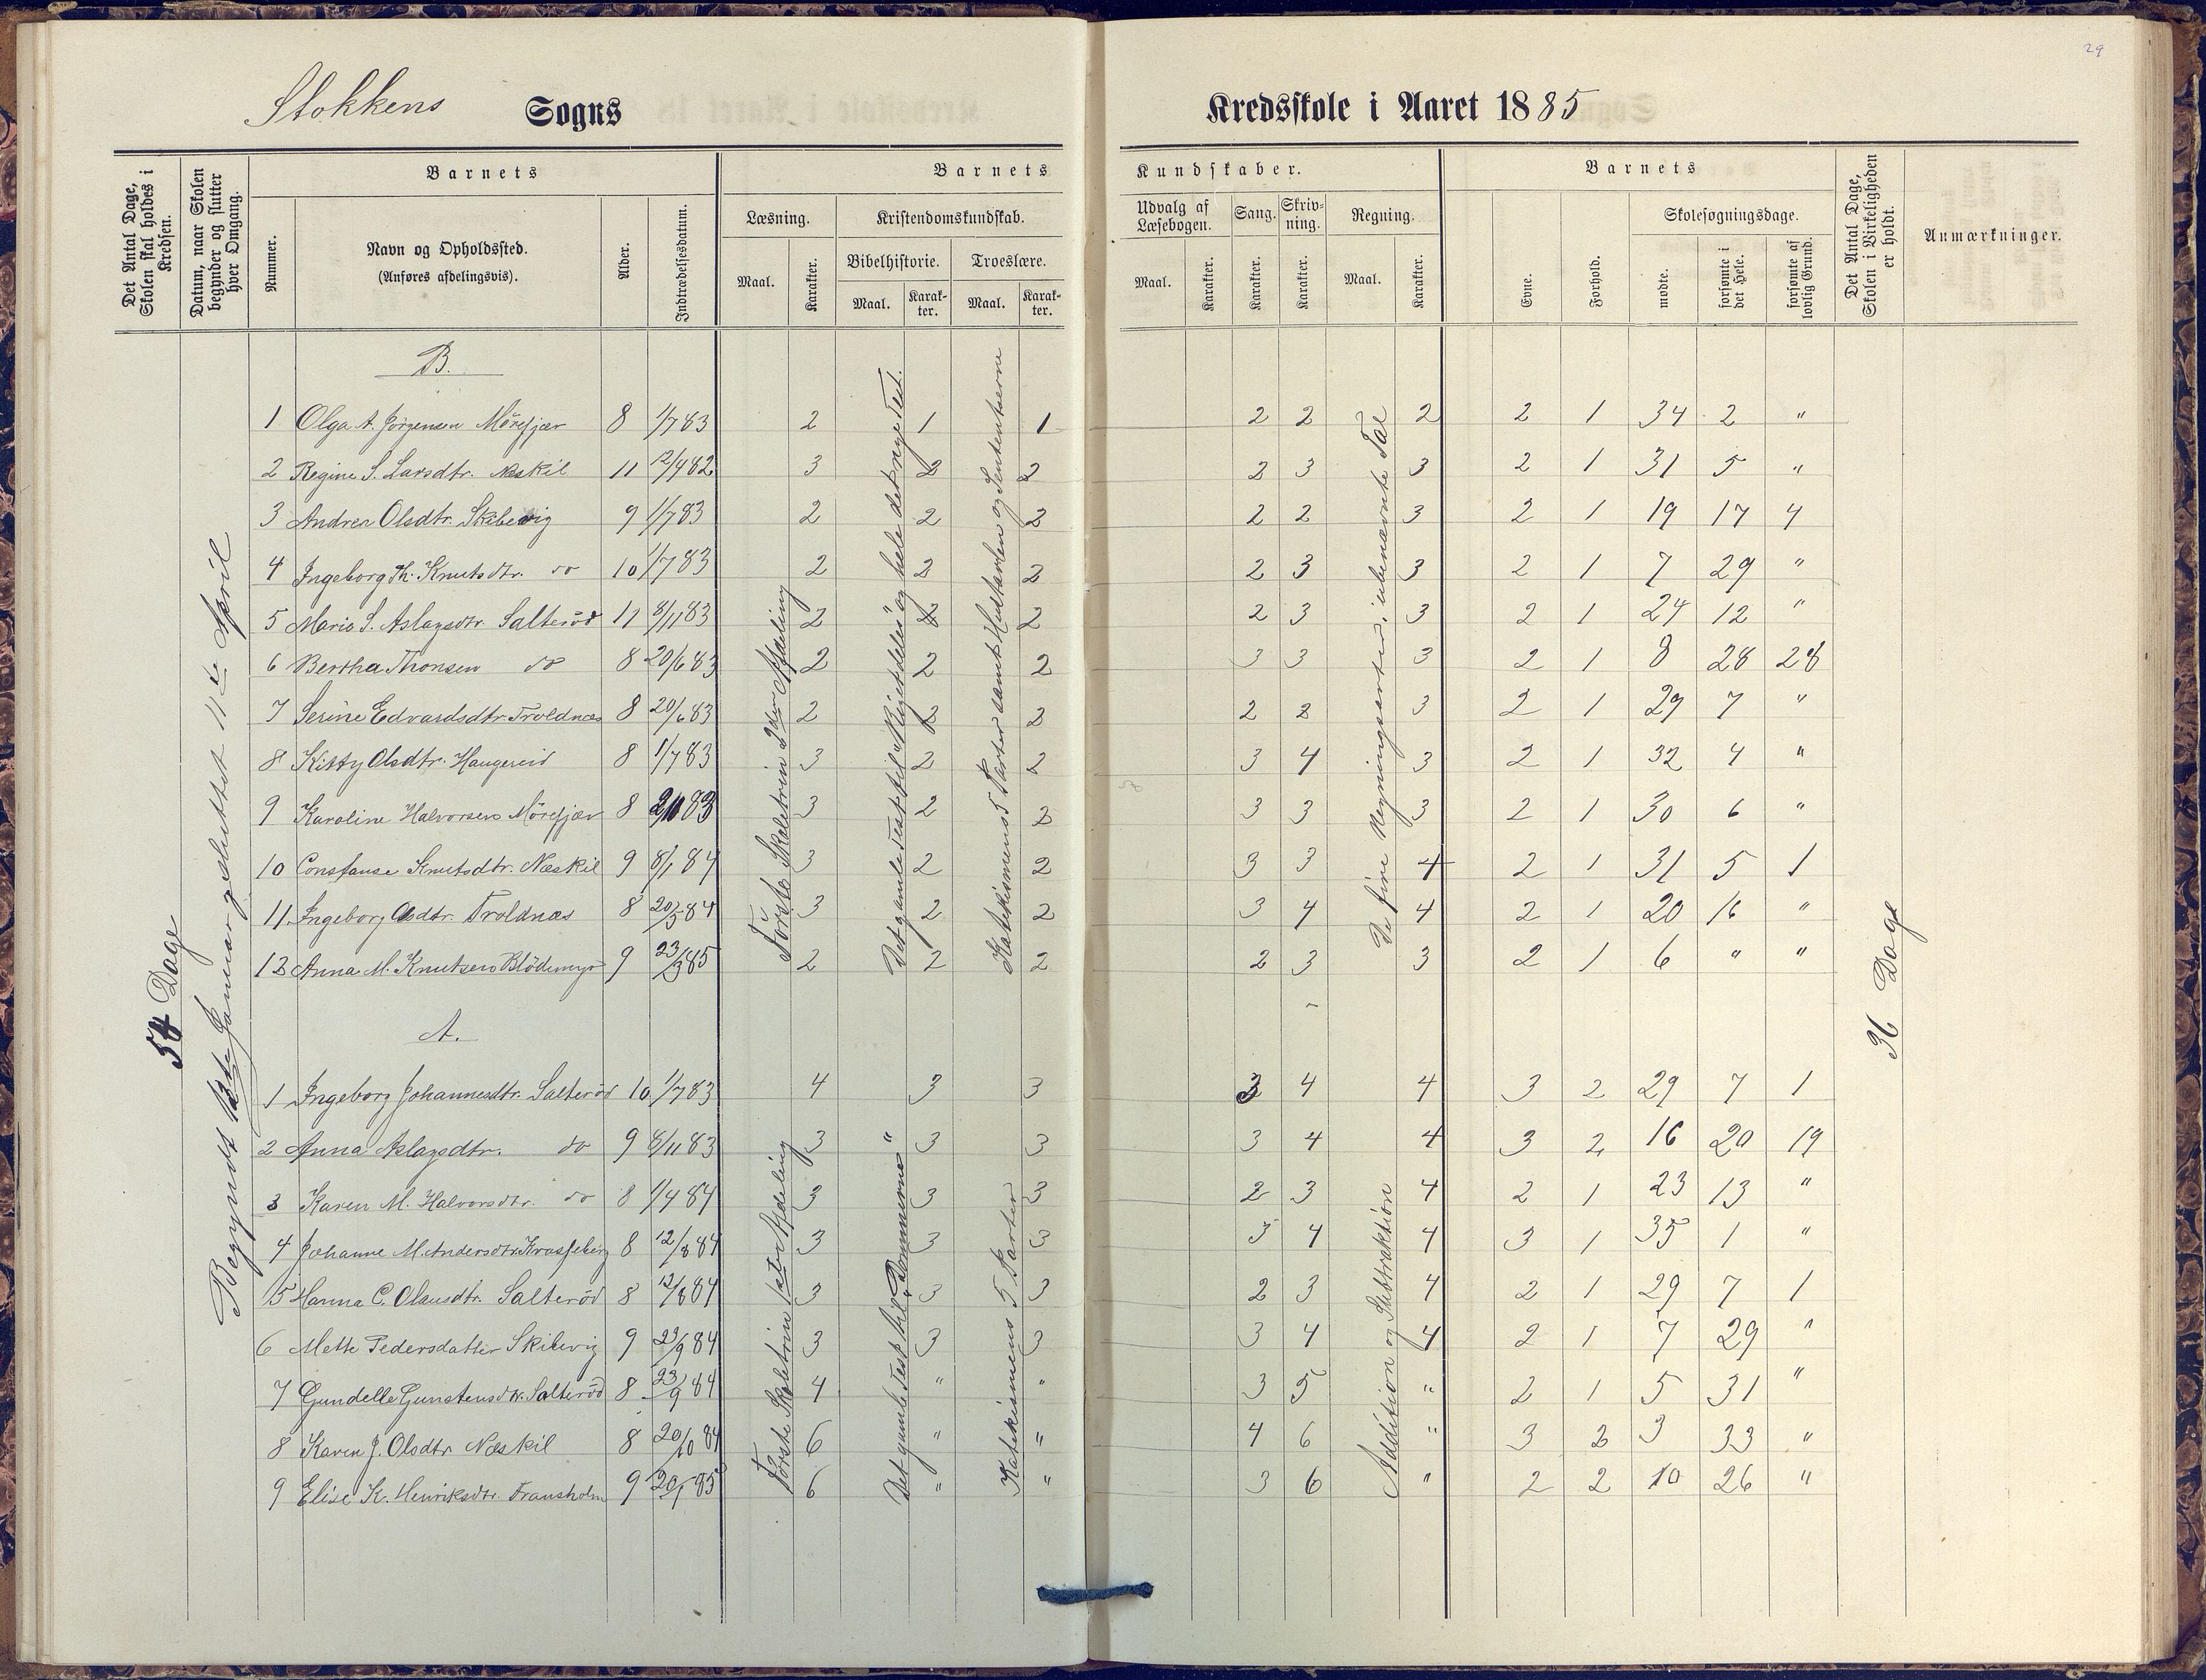 29
Stokkens Sogns Kredsskole i Aaret 1885
Det Antal Dage, Skolen skal holdes i Kredsen.
Datum, naar Skolen begynder og slutter hver Omgang.
Barnets
Nummer.
Navn og Opholdssted.
(Anføres afdelingsvis).
Alder.
Indtrædelsesdatum.
Barnets Kundskaber.
Læsning.
Maal.
Karakter.
Kristendomskundskab.
Bibelhistorie.
Maal.
Karakter.
Troeslære.
Maal.
Karakter.
Udvalg af Læsebogen.
Maal.
Karakter.
Sang.
Karakter.
Skrivning.
Karakter.
Regning.
Maal.
Karakter.
Barnets
Evne.
Forhold.
Skolesøgningsdage.
mødte.
forsømte i det Hele.
forsømte af lovlig Grund.
Det Antal Dage, Skolen i Virkeligheden er holdt.
Anmærkninger.
54 Dage
Begyndt 12te Januar og sluttet 11te April
B.
1 Olga A. Jørgensen Mörefjær 8 1/7 83 2 1 1 2 2 2 2 1 34 2 "
2 Regine S. Larsdtr. Neskil 11 12/4 82 3 2 2 2 3 3 2 1 31 5 "
3 Andrea Olsdtr. Skibevig 9 1/7 83 2 2 2 2 2 3 2 1 19 17 4
4 Ingeborg Th. Knutsdtr. do 10 1/7 83 2 2 2 2 3 3 2 1 7 29 "
5 Maria S. Aslagsdtr. Salteröd 11 8/11 83 2 2 2 2 3 3 2 1 24 12 "
6 Bertha Thonsen do 8 20/6 83 2 2 2 3 3 3 2 1 8 28 28
7 Serine Edvardsdtr. Troldnæs 8 20/6 83 2 2 2 2 2 3 2 1 29 7 "
8 Kitty Olsdtr. Haugereid 8 1/7 83 3 2 2 3 4 3 2 1 32 4 "
9 Karoline Halvorsen Mörefjær 8 2/10 83 3 2 2 3 3 3 2 1 30 6 "
10 Constanse Knutsdtr. Næskil 9 8/1 84 3 2 2 3 3 4 2 1 31 5 1
11 Ingeborg Olsdtr. Troldnæs 8 20/5 84 3 2 2 3 4 4 2 1 20 16 "
12 Anna M. Knutsen Blödemyr 9 23/3 85 2 2 2 2 3 3 2 1 6 " "
Förste Skoletrin 2den Afdeling
Det gamle Test. til "Rigets deles" og hele det nye Test.
Katekismens 5 Parter samt Hustavlen og Sententserne
De fire Regningsarter i ubenævnte Tal
36 Dage
A.
1 Ingeborg Johannesdtr. Salteröd 10 1/7 83 4 3 3 3 4 4 3 2 29 7 1
2 Anna Aslagsdtr. do 9 8/11 83 3 3 3 3 4 4 3 2 16 20 19
3 Karen M. Halvorsdtr. do 8 1/4 84 3 3 3 2 3 4 2 1 23 13 "
4 Johanne M. Andersdtr. 8 12/8 84 3 3 3 3 4 4 3 1 35 1 "
5 Hanna C. Olausdtr. Salteröd 8 12/8 84 3 3 3 2 3 4 2 1 29 7 1
6 Mette Pedersdatter Skibevig 9 23/9 84 3 3 3 3 4 4 2 1 7 29 "
7 Gundelle Gunstensdtr. Salteröd 8 23/9 84 4 " " 3 5 " 2 1 5 31 "
8 Karen J. Olsdtr Næskil 8 20/10 84 6 " " 4 6 " 3 2 3 33 "
9 Elise K. Henriksdtr. Fransholm 9 20/1 85 6 " " 3 6 " 2 2 10 26 "
Förste Skoletrin 1ste Afdeling
Det gamle Test. til "Dommerne"
Katekismens 5 Parter
Addition og Subtraktion